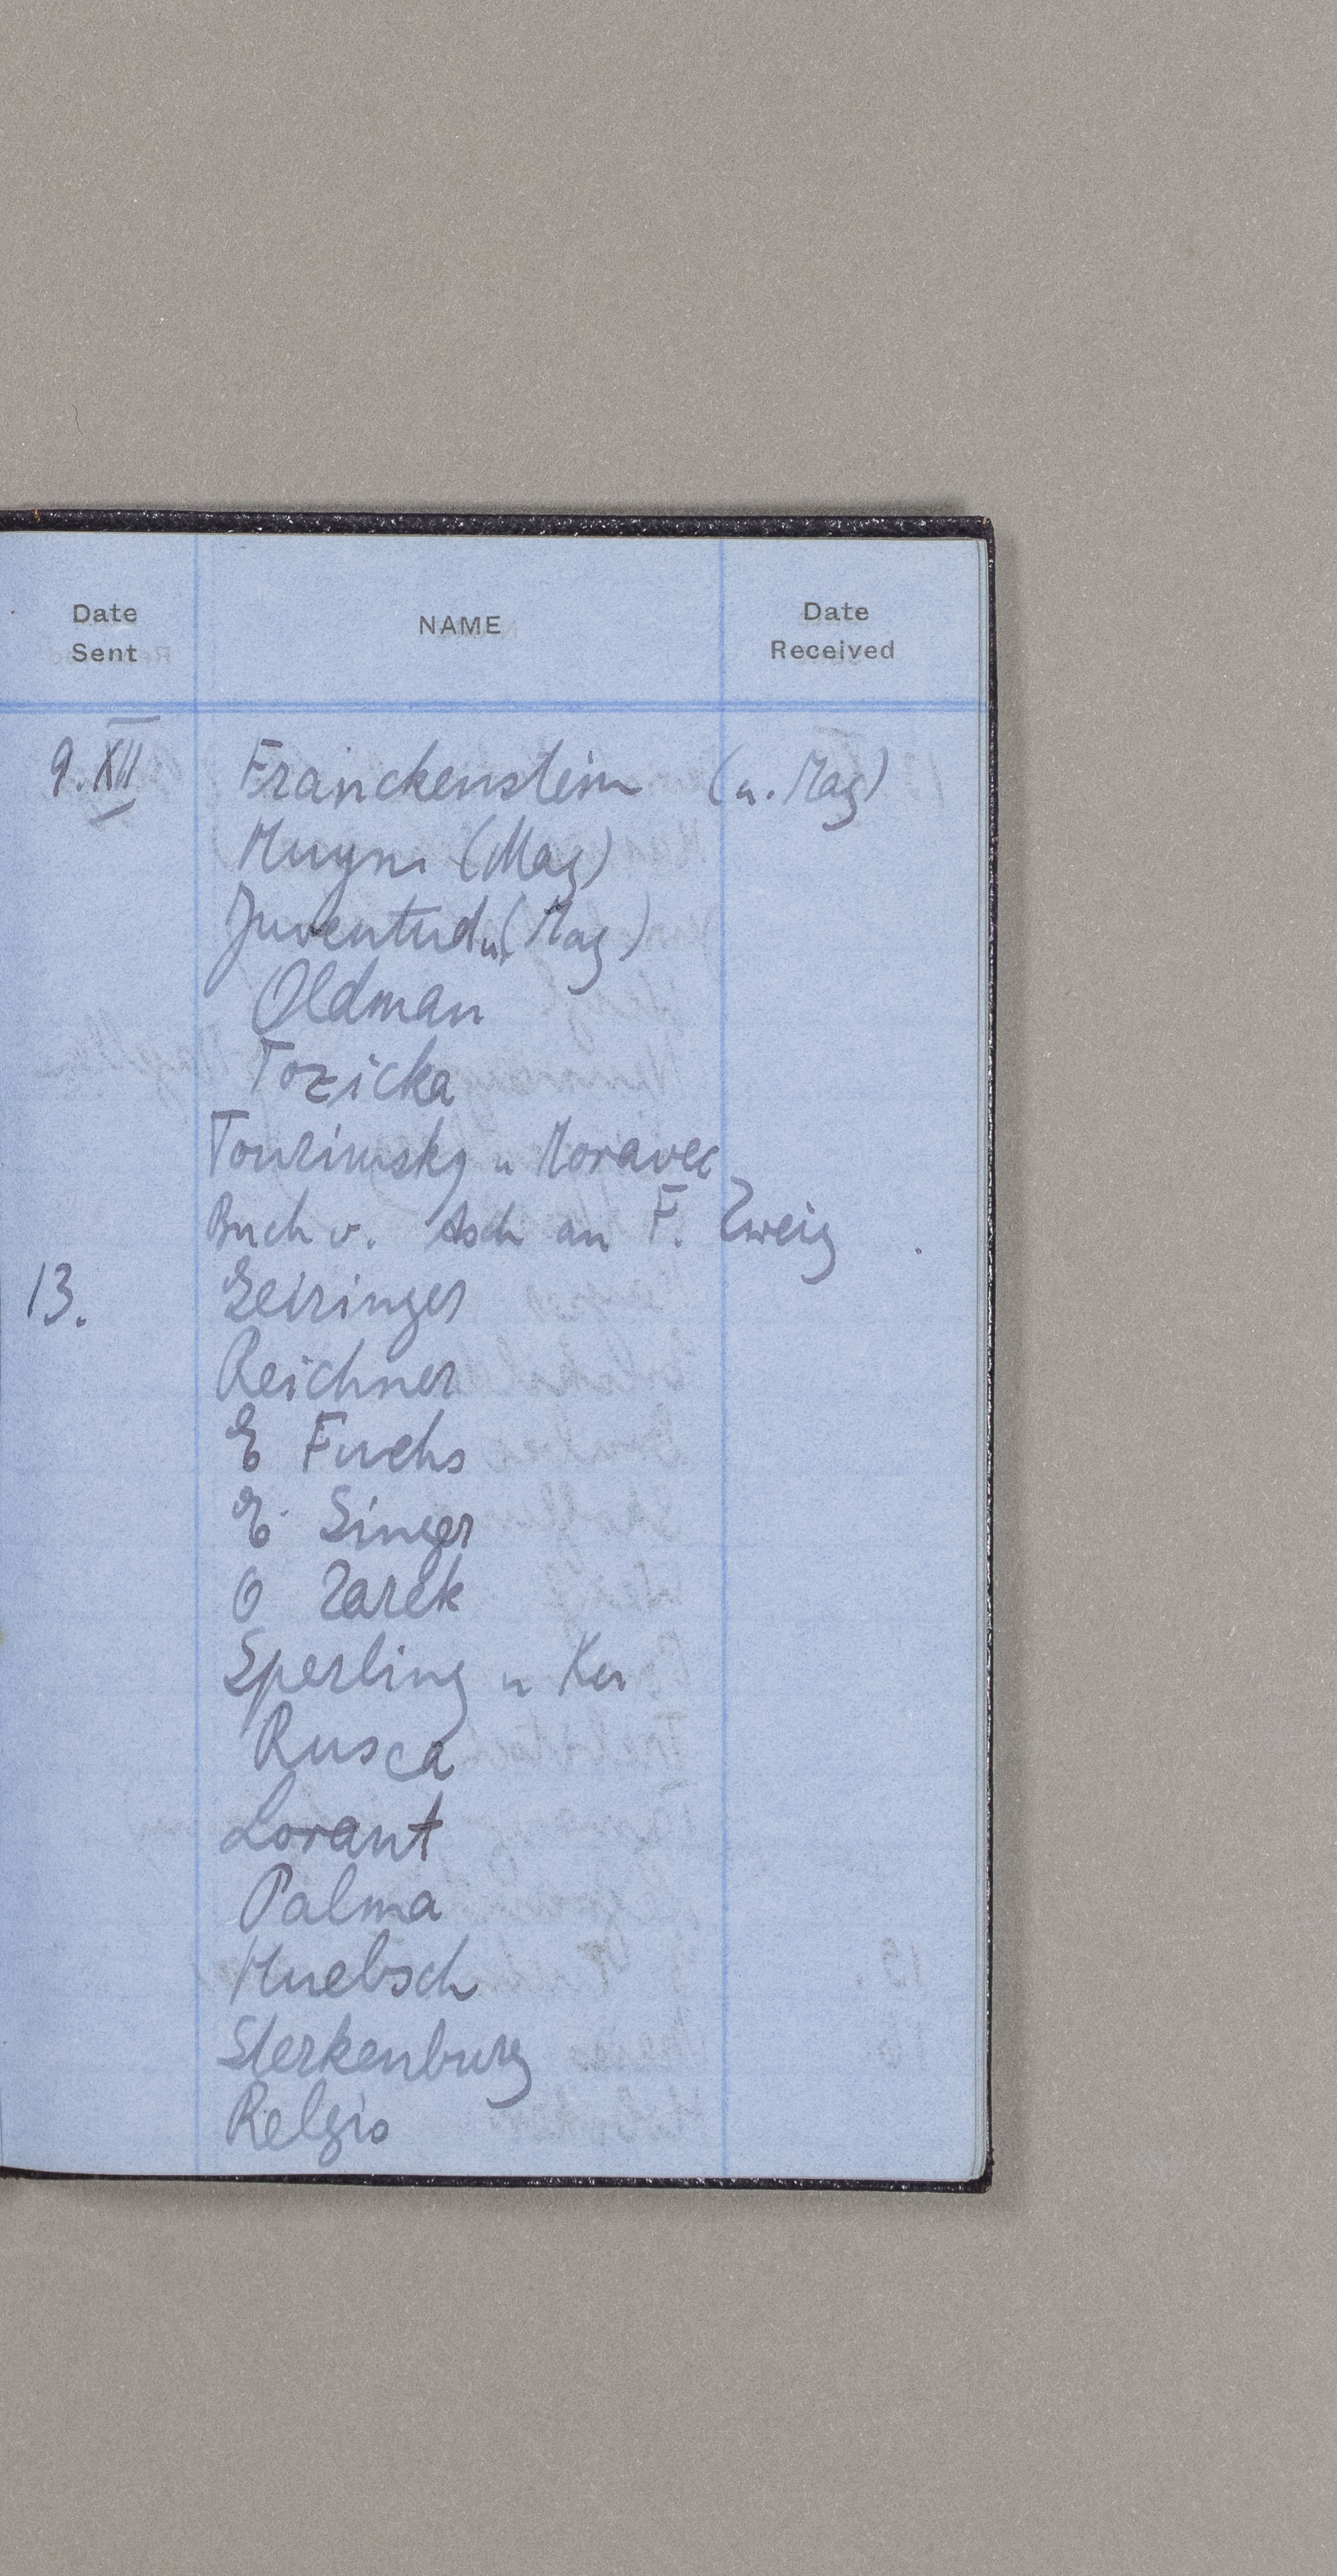 Date Sent NAME Date Received
9. XII Franckenstein (u. Mag)
Muyni (Mag)
Juventud u (Mag)
Oldman
Tozicka
u Moravec
Buch v. Asch an F. Zweig
13. Geiringer
Reichner
E Fuchs
E. Singer
O Zarek
Sperling u
Rusca
Lorant
Palma
Huebsch
Sterkenburg
Relgis